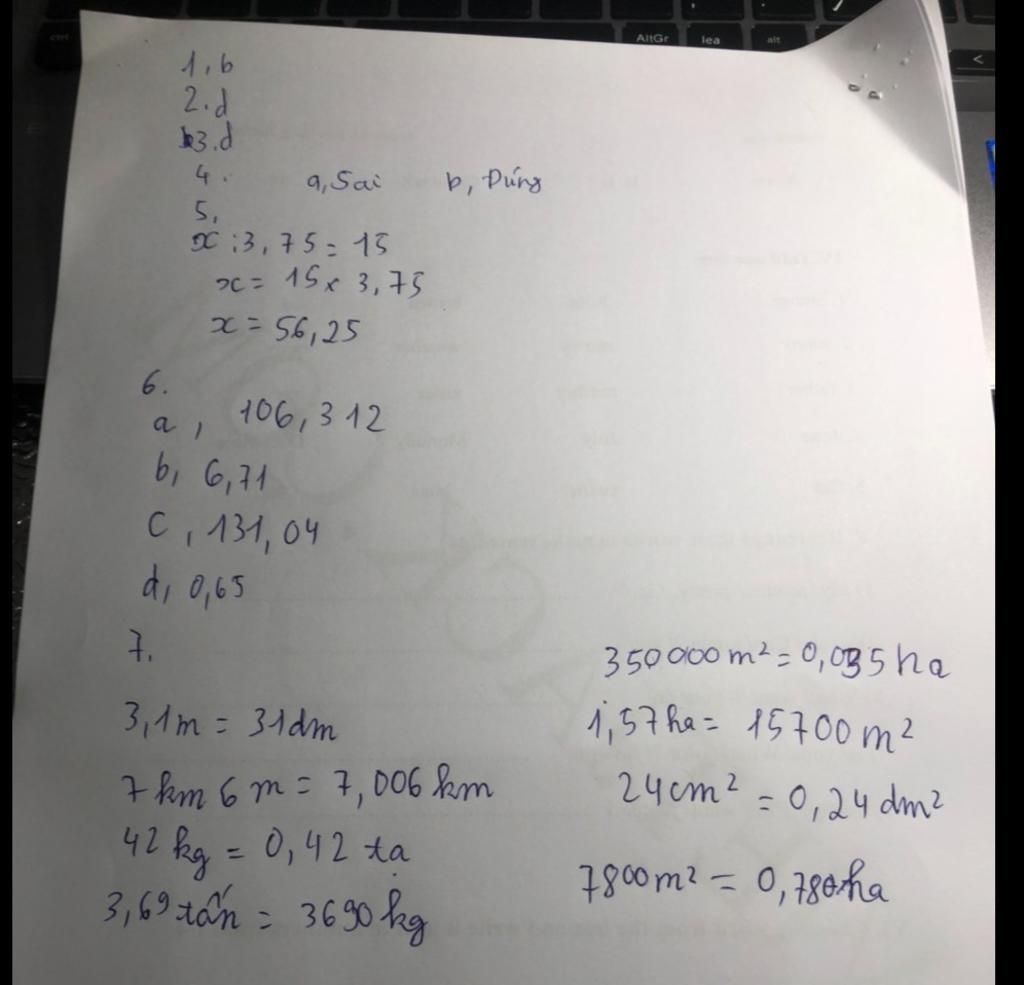 AltGr lea alt
ctrl
<
1, b
2. d
3. d
4. a, Sai b, Đúng
5,
x : 3,75 = 15
x = 15 x 3,75
x = 56,25
6.
a, 106,312
b, 6,71
c, 131,04
d, 0,65
7.
3,1m = 31dm
7km 6m = 7,006 km
42 kg = 0,42 tạ
3,69 tấn = 3690 kg
350000m² = 0,035 ha
1,57 ha = 15700 m²
24cm² = 0,24 dm²
7800m² = 0,780 ha